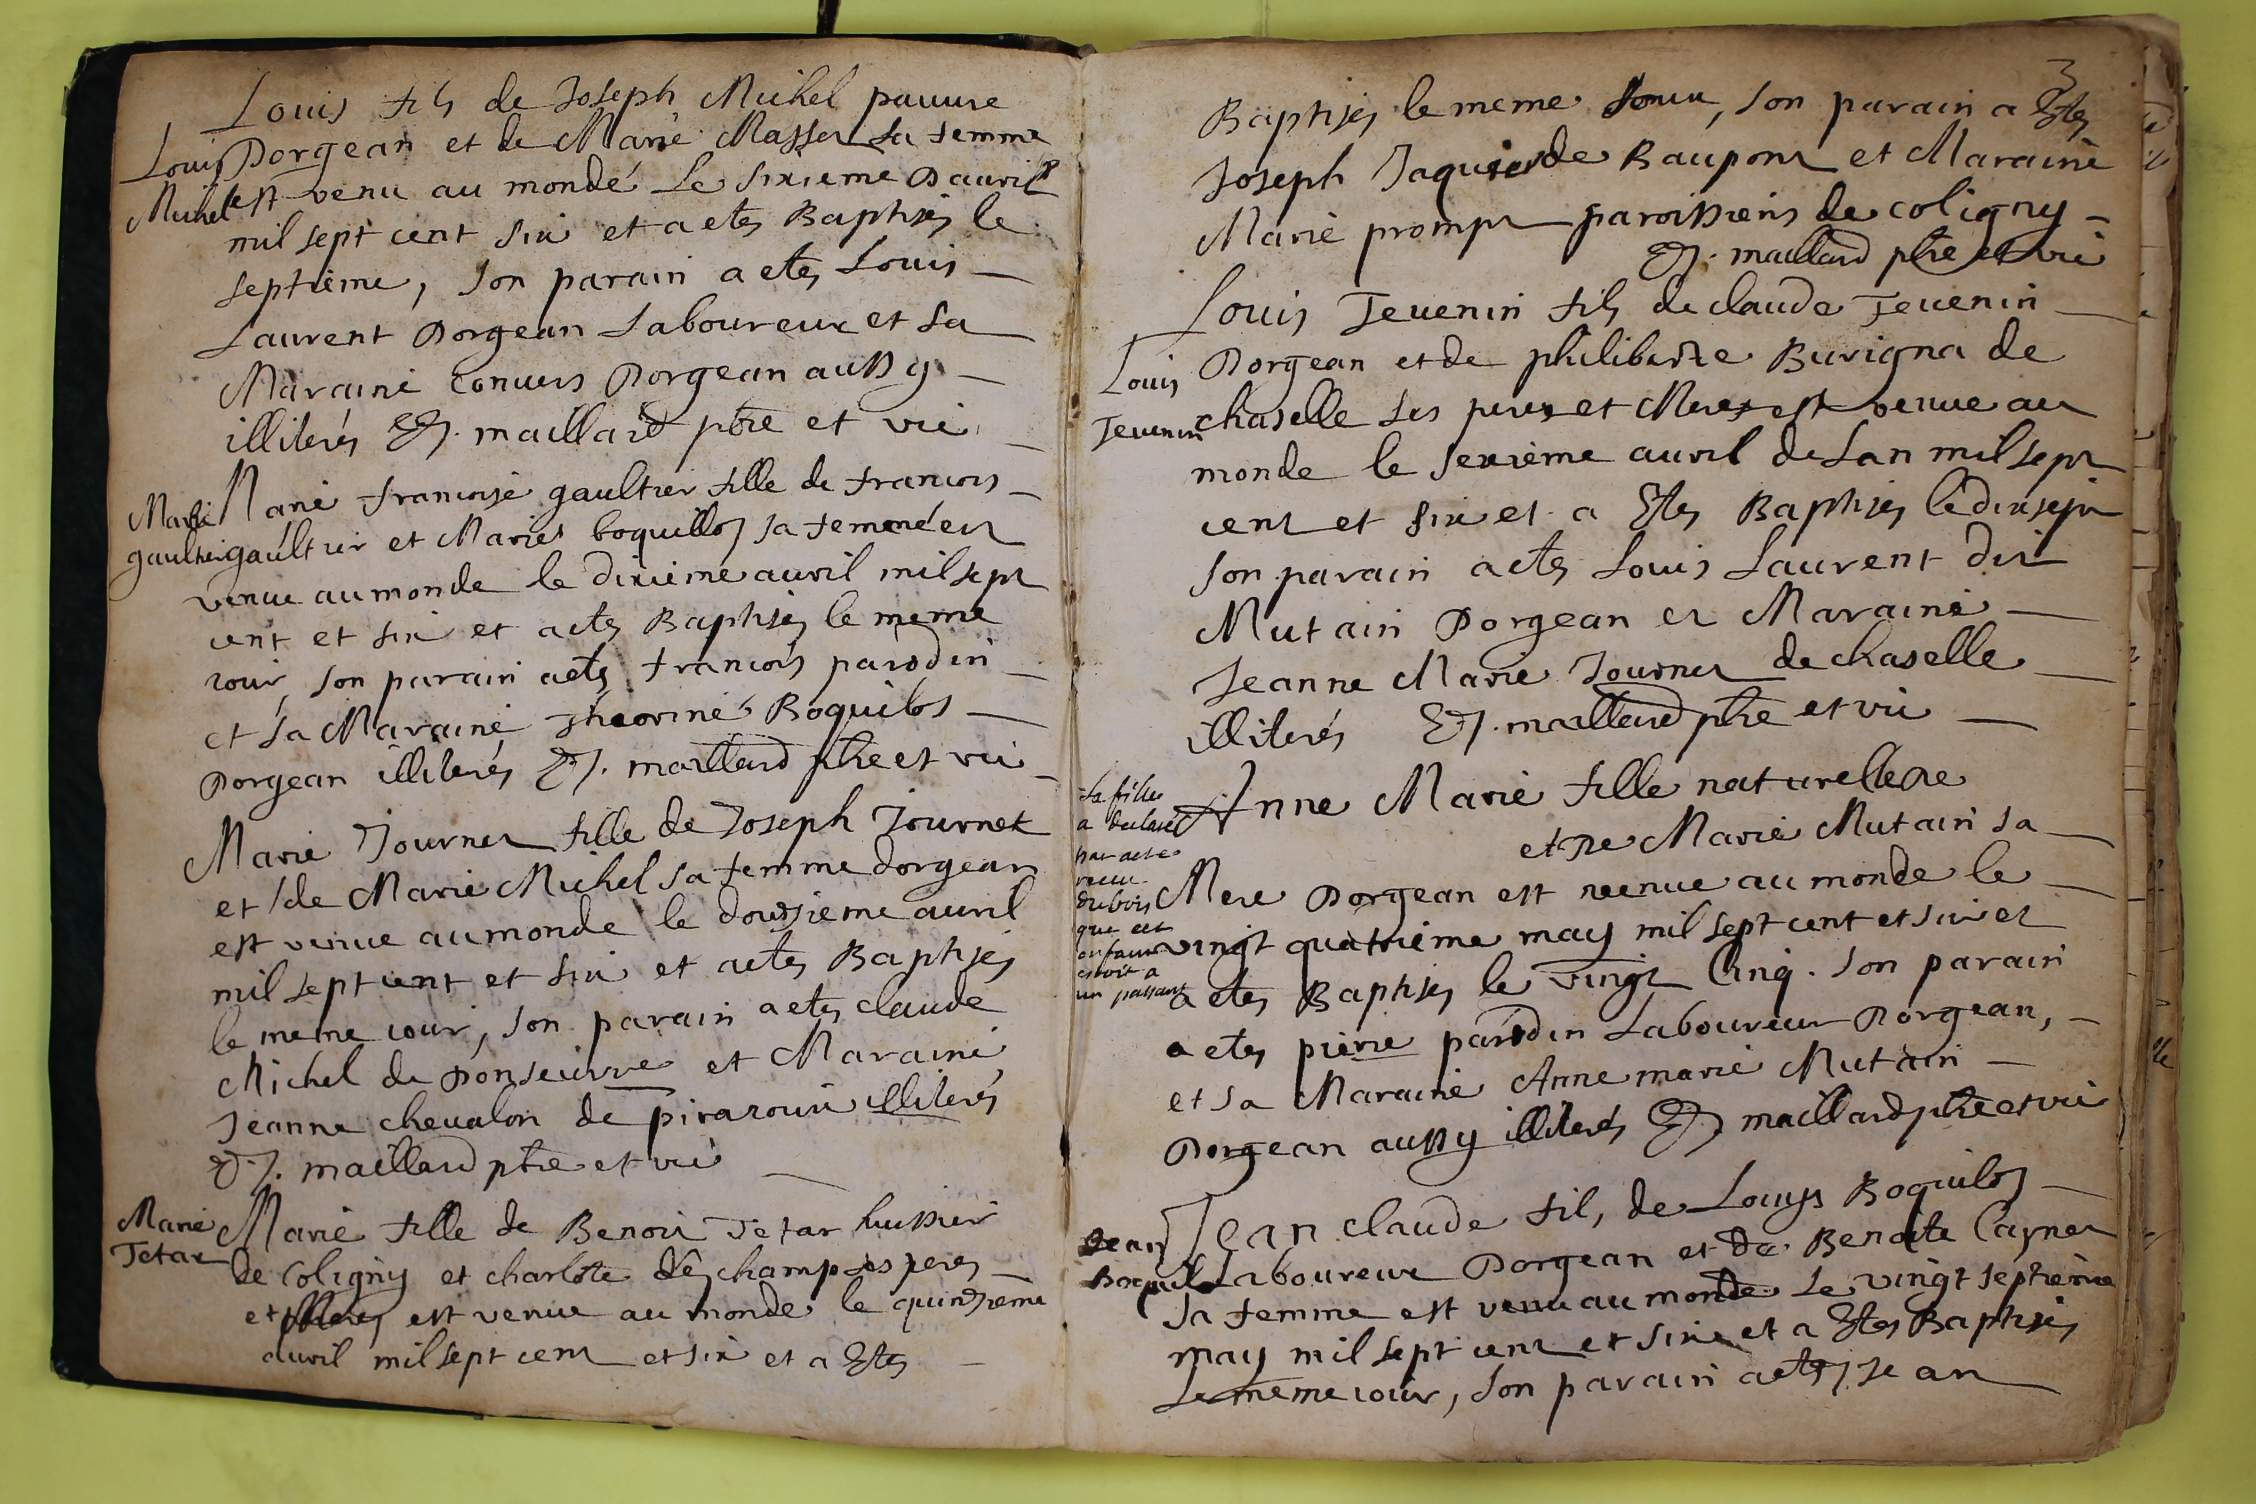 Louis fils de Joseph Michel pauure
Louis
Dorgean et de Marie Masson sa femme
Michel
est venu au monde Le sixieme Dauril
mil sept cent six et a etes Baptises le
septieme, son parain a etes Louis
Laurent Dorgean Laboureur et sa
Maraine Dorgean aussy
illiterés maillard ptre et vic
Marie francoise gaultier fille de francois
Marie
gaultier
gaultier et Marie boquillos sa femme est
venue au monde le dixieme auril mil sept
cent et six et a etes Baptises le meme
iour, son parain a etes francois parodin
et sa Maraine Boquilos
Dorgean illiterés maillard ptre et vic
Marie Journet fille de Joseph Journet
et de Marie Michel sa femme dorgean
est venue au monde le douzieme auril
mil sept cent et six et a etes Baptises
le meme iour, son parain a etes claude
Michel de et Maraine
Jeanne cheualon de piraroux illiterés
maillard ptre et vic
Marie fille de Benoit Tetar hussier
Marie
Tetar
de Coligny et charlote deschamps ses peres
et Meres est venue au monde le quinzieme
auril mil sept cent et six et a Etes
3
Baptises le meme iour, son parain a Etes
Joseph Jaquier de Baupont et Maraine
Marie prompt paroissiens de coligny
maillard ptre et vic
Louis Teuenin fils de claude Teuenin
Louis
Dorgean et de philiberte Burigna de
Teuenin
chaselle ses peres et Meres est venue au
monde le sexieme auril de Lan mil sept
cent et six et a Etes Baptises le dixsept
son parain a etes Louis Laurent dit
Mutain Dorgean et Maraine
Jeanne Marie Journet de chaselle
illiterés maillard ptre et vic
Anne Marie fille naturelle de
La fille
a declaré
par acte
receu
dubois
que cet
enfant
estoit a
un passant
et de Marie Mutain sa
Mere Dorgean est venue au monde le
vingt quatrieme may mil sept cent et six et
a etes Baptises le vingt Cinq. son parain
a etes pierre parodin Laboureur Dorgean,
et sa Maraine Anne marie Mutain
Dorgean aussy illiterés maillard ptre et vic
Jean claude fils de Louys Boquilos
Jean
Boquilos
Laboureur Dorgean et de Benoite Caynet
sa femme est venu au monde Le vingt septieme
may mil sept cent et six et a Etes Baptises
Le meme iour, son parain a etes Jean